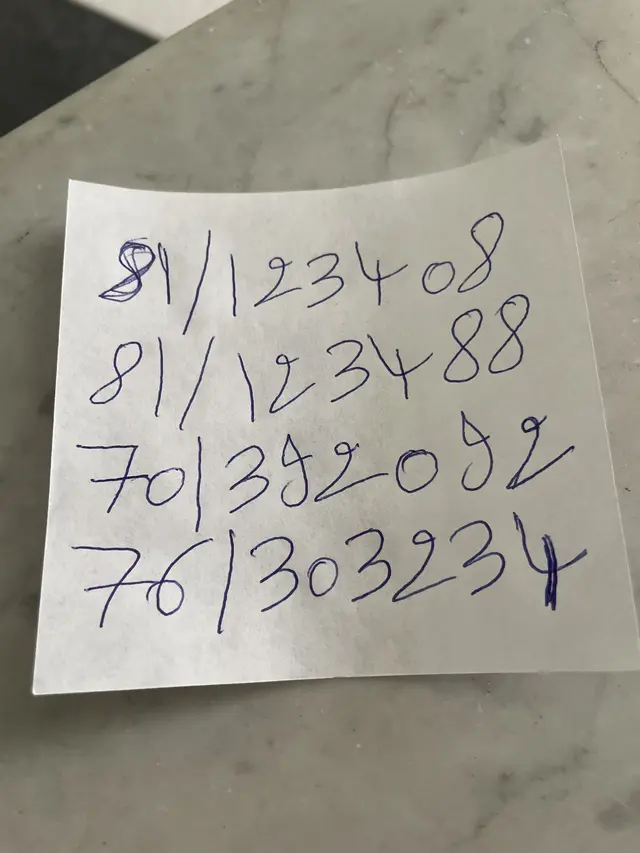 81/123408
81/123488
70/392092
76/303234